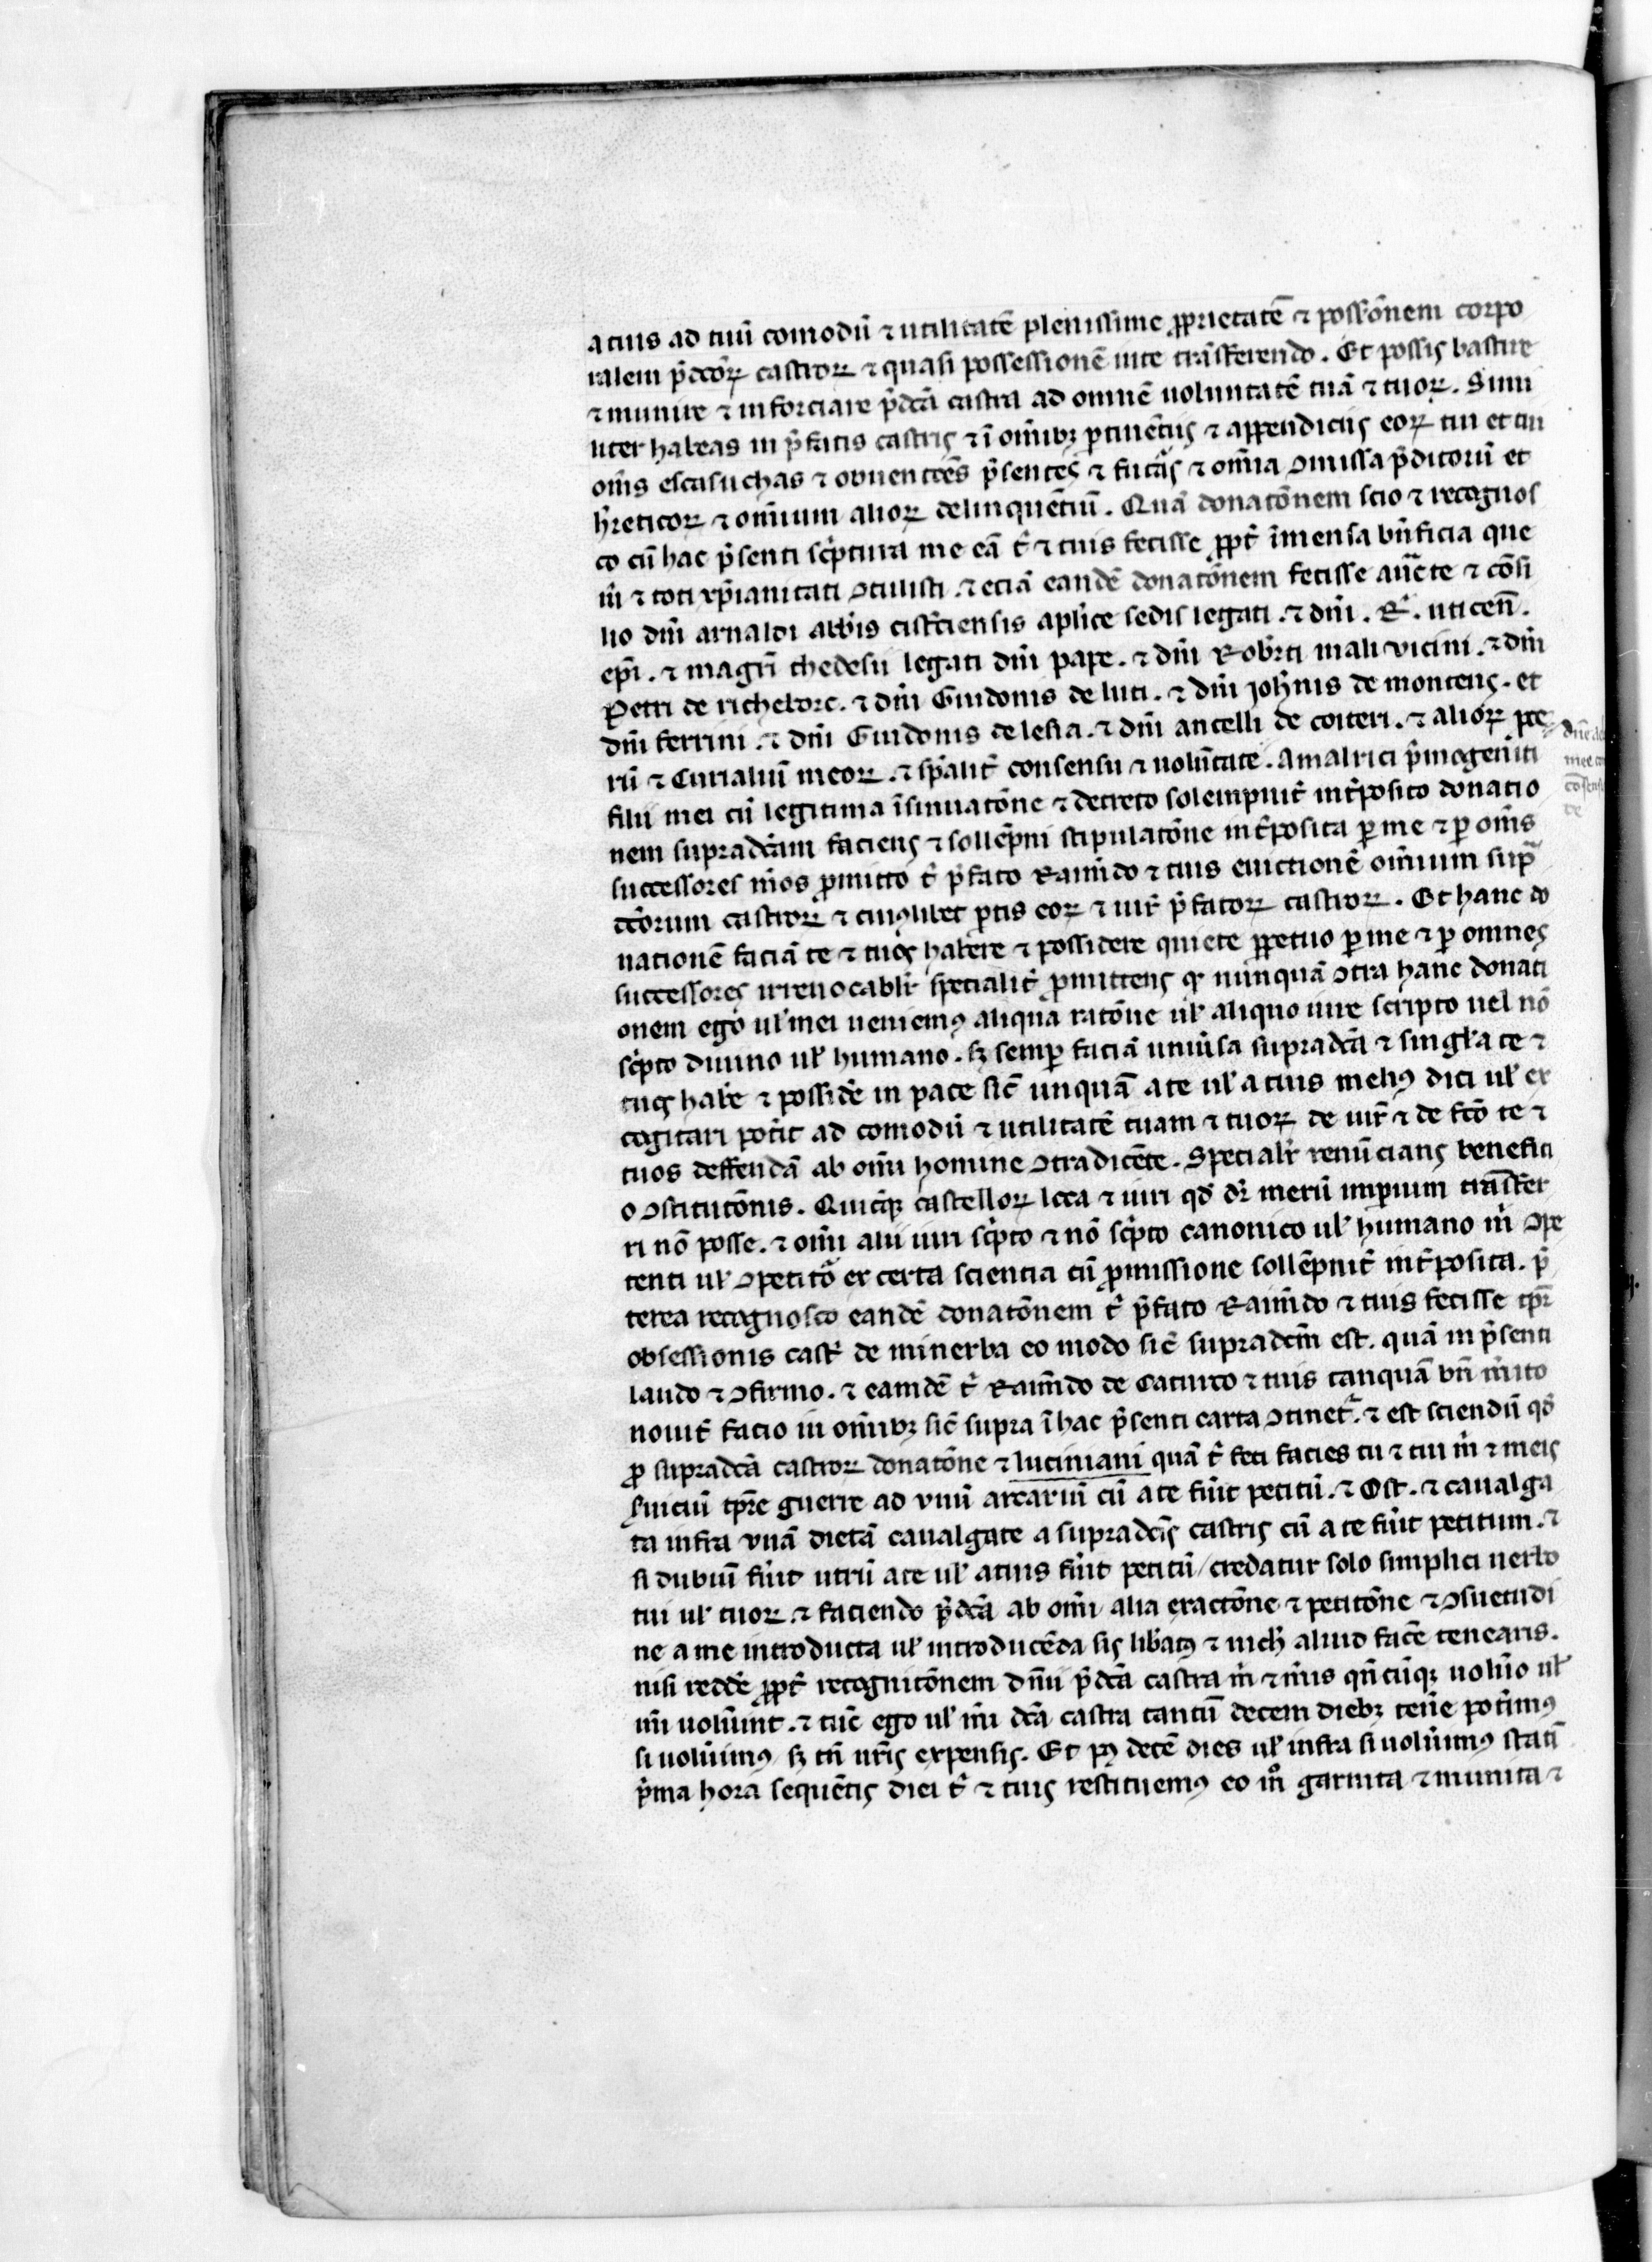 a tuis ad tuū comodū ⁊ utilitatē plenissime ꝓprietatē ⁊ possōnem corpo
ralem p̄dcōꝝ castroꝝ ⁊ quasi possessionē in te trāsferendo. Et possis bastire
⁊ munire ⁊ inforciare p̄dcā castra ad omnē uoluntatē tuā ⁊ tuoꝝ. Simi
liter habeas in p̄fatis castris ⁊ ī omībꝫ ꝑtinētiis ⁊ appendiciis eoꝝ tui et tui
om̄s escasuchas ⁊ obuencōēs p̄sentes ⁊ futās ⁊ om̄ia ꝯmissa p̄ditorū et
h̄reticoꝝ ⁊ om̄ium alioꝝ delinquētiū. Quā donatōnem scio ⁊ recognos
co cū hac p̄senti scͥptura me eā t̄ ⁊ tuis fecisse ꝓpt̄ īmensa bn̄ficia que
m̄ ⁊ toti xp̄ianitati ꝯtulisti. ⁊ eciā eandē donatōnem fecisse auct̄te ⁊ cōsi
lio dn̄i arnaldi abb̄is cist̄ciensis ap̄lice sedis legati. ⁊ dn̄i. R̄. uticen̄.
ep̄i. ⁊ magr̄i thedesii legati dn̄i pape. ⁊ dn̄i Rob̄rti mali vicini. ⁊ dn̄i
Petri de richeborc. ⁊ dn̄i Guidonis de luci. ⁊ dn̄i joh̄nis de monteus. et
dn̄i ferrini. ⁊ dn̄i Guidonis de lesia. ⁊ dn̄i ancelli de coiteri. ⁊ alioꝝ pe
rū ⁊ Curialiū meoꝝ. ⁊ sp̄alit̄ consensu ⁊ volūtate. Amalrici p̄mogeniti
filii mei cū legitima īsinuatōne ⁊ decreto solempnit̄ int̄posito donatio
nem supradc̄am faciens ⁊ sollēpni stipulatōne int̄posita ꝑ me ⁊ ꝑ om̄s
successores m̄os ꝓmitto t̄ p̄fato Raim̄do ⁊ tuis euictionē om̄ium sup̄
dc̄orum castroꝝ ⁊ cuiꝯlibet ꝑtis eoꝝ ⁊ iur̄ p̄fatoꝝ castroꝝ. Et hanc do
nationē faciā te ⁊ tuos habere ⁊ possidere quiete ꝑpetuo ꝑ me ⁊ ꝑ omnes
successores irreuocablr̄ specialit̄ ꝓmittens ꝙ nunquā ꝯtra hanc donati
onem ego ul̄ mei ueniemꝯ aliqua ratōne ul̄ aliquo iure scripto uel nō
scͥpto diuino ul̄ humano. sꝫ semꝑ faciā uniu̇sa supradc̄a ⁊ singl̄a te ⁊
tuos hab̄e ⁊ possid̄e in pace sic̄ unquā a te ul̄ a tuis meliꝯ dici ul̄ ex
cogitari pot̄it ad comodū ⁊ utilitatē tuam ⁊ tuoꝝ de iur̄ ⁊ de fc̄o te ⁊
tuos deffendā ab om̄i homine ꝯtradicēte. Specialr̄ renūcians benefici
o ꝯstitutōnis. Quicͥqꝫ castelloꝝ loca ⁊ iuri qd̄ dr̄ merū imꝑium trāsfer
ri nō posse. ⁊ om̄i alii iuri scͥpto ⁊ nō scͥpto canonico ul̄ humano m̄ ꝯpe
tenti ul̄ ꝯpetitō ex certa sciencia cū ꝓmissione sollēpnit̄ int̄posita. p̄
terea recognosco eandē donatōnem t̄ p̄fato Raim̄do ⁊ tuis fecisse tpr̄
obsessionis cast̄ de minerba eo modo sic̄ supradc̄m est. quā in p̄senti
laudo ⁊ ꝯfirmo. ⁊ eamdē t̄ Raim̄do de Caturco ⁊ tuis tanquā bn̄ m̄ito
nouit̄ facio in om̄ibꝫ sic̄ supra ī hac p̄senti carta ꝯtinet̄. ⁊ est sciendū qd̄
ꝓ supradc̄a castroꝝ donatōne ⁊ luciniani quā t̄ feci facies tu ⁊ tui m̄ ⁊ meis
s̄uiciū tpr̄e guerre ad vnū arcariū cū a te fūit petitū. ⁊ Ost. ⁊ caualga
ta infra vnā dietā caualgate a supradc̄is castris cū a te fūit petitum. ⁊
si dubiū fūit utrū a te ul̄ a tuis fūit petitū/ credatur solo simplici uerbo
tui ul̄ tuoꝝ. ⁊ faciendo p̄dc̄a ab om̄i alia exactōne ⁊ petitōne ⁊ ꝯsuetudi
ne a me introducta ul̄ introducēda sis lib̄atꝯ ⁊ nich̄ aliud fac̄e tenearis.
nisi redd̄e ꝓpt̄ recognitōnem dn̄ii p̄dc̄a castra m̄ ⁊ m̄is qn̄cūqꝫ uolūo ul̄
m̄i uolūint. ⁊ tūc ego ul̄ m̄i dc̄a castra tantū decem diebꝫ ten̄e pot̄imꝯ
si uolūimꝯ sꝫ tn̄ nr̄is expensis. Et pꝯ decē dies ul̄ infra si uolūimꝯ statī
p̄ma hora sequētis diei t̄ ⁊ tuis restituemꝯ eo m̊ garnita ⁊ munita ⁊